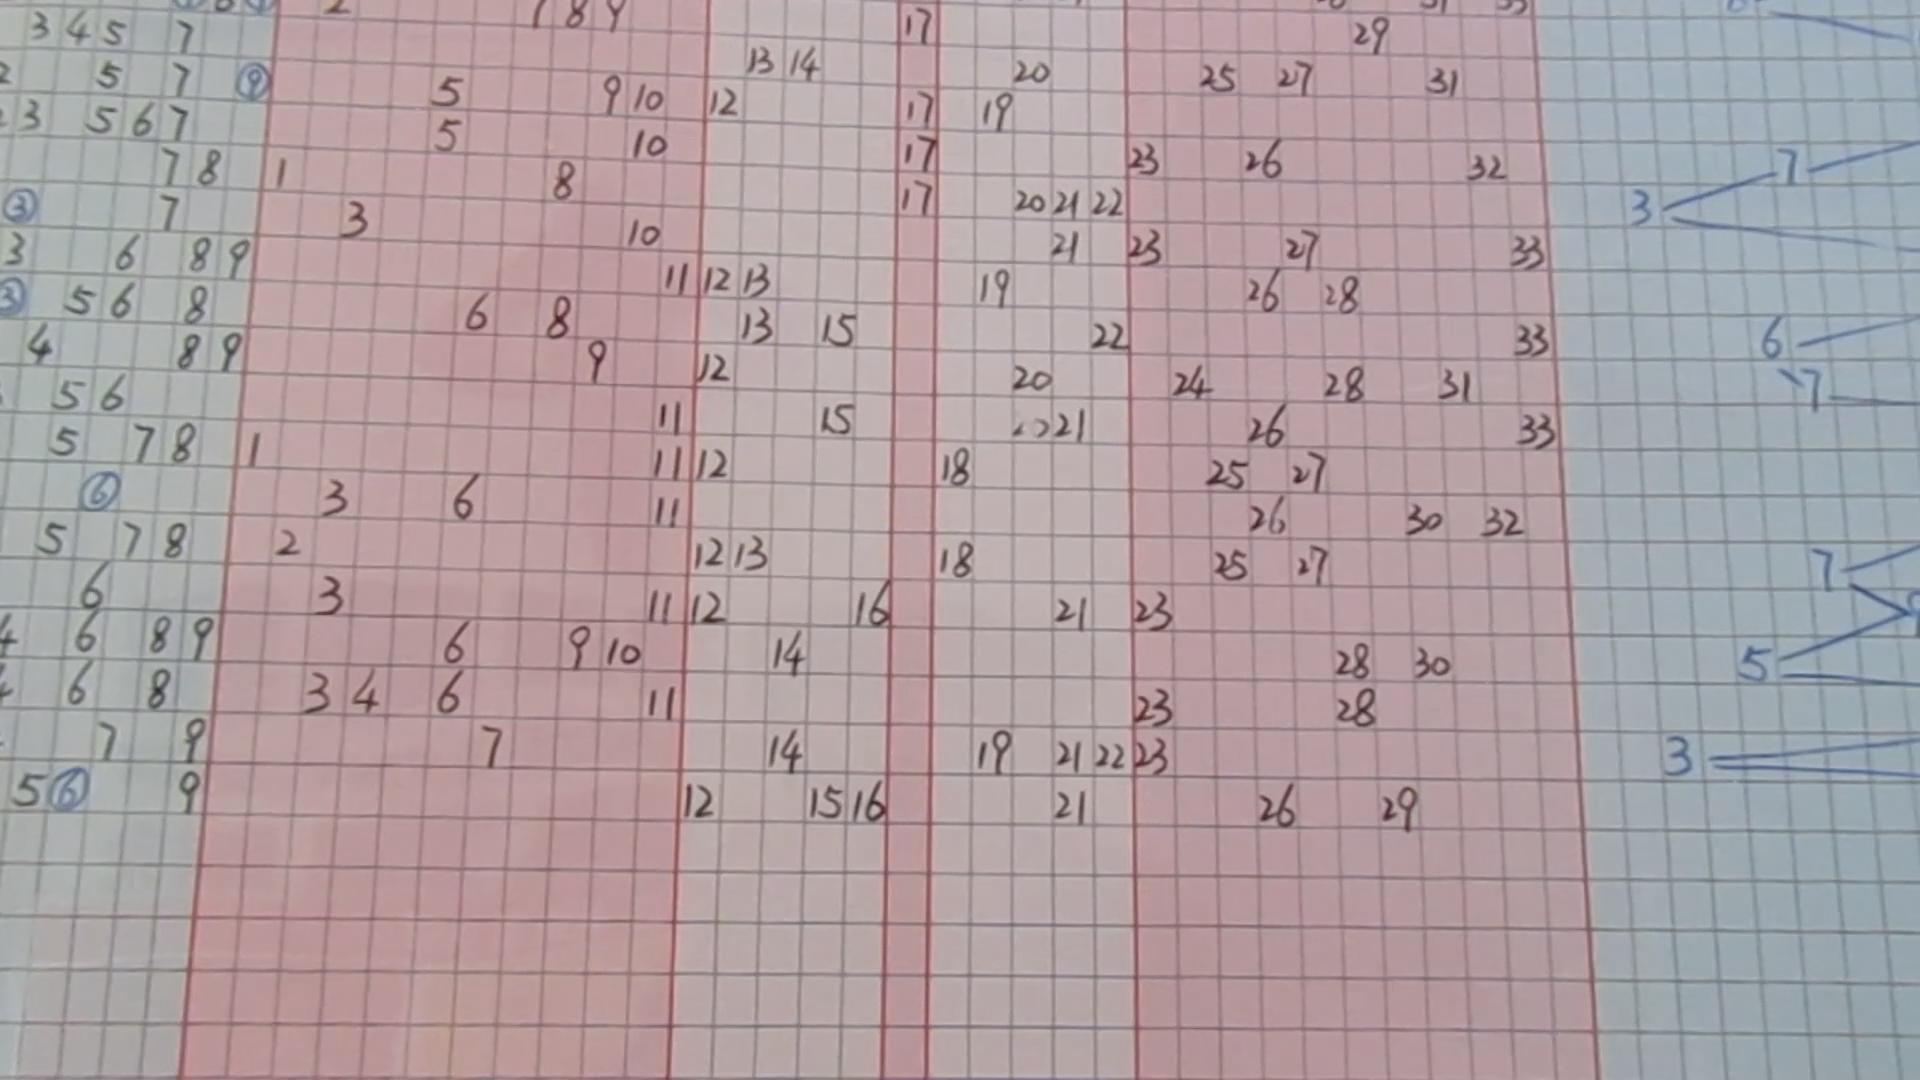 2 7 8 9 17 29
3 4 5 7 13 14 20 25 27 31
2 5 7 ⑨ 5 9 10 12 17 19
3 5 6 7 5 10 17 23 26 32
7 8 1 8 17 20 21 22
③ 7 3 10 21 23 27 33
3 6 8 9 11 12 13 19 26 28
③ 5 6 8 6 8 13 15 22 33
4 8 9 9 12 20 24 28 31
5 6 11 15 21 26 33
5 7 8 1 11 12 18 25 27
⑥ 3 6 11 26 30 32
5 7 8 2 12 13 18 25 27
6 3 11 12 16 21 23
4 6 8 9 6 9 10 14 28 30
4 6 8 3 4 6 11 23 28
7 9 7 14 19 21 22 23
5 ⑥ 9 12 15 16 21 26 29
3 7
6
7
7
5
3